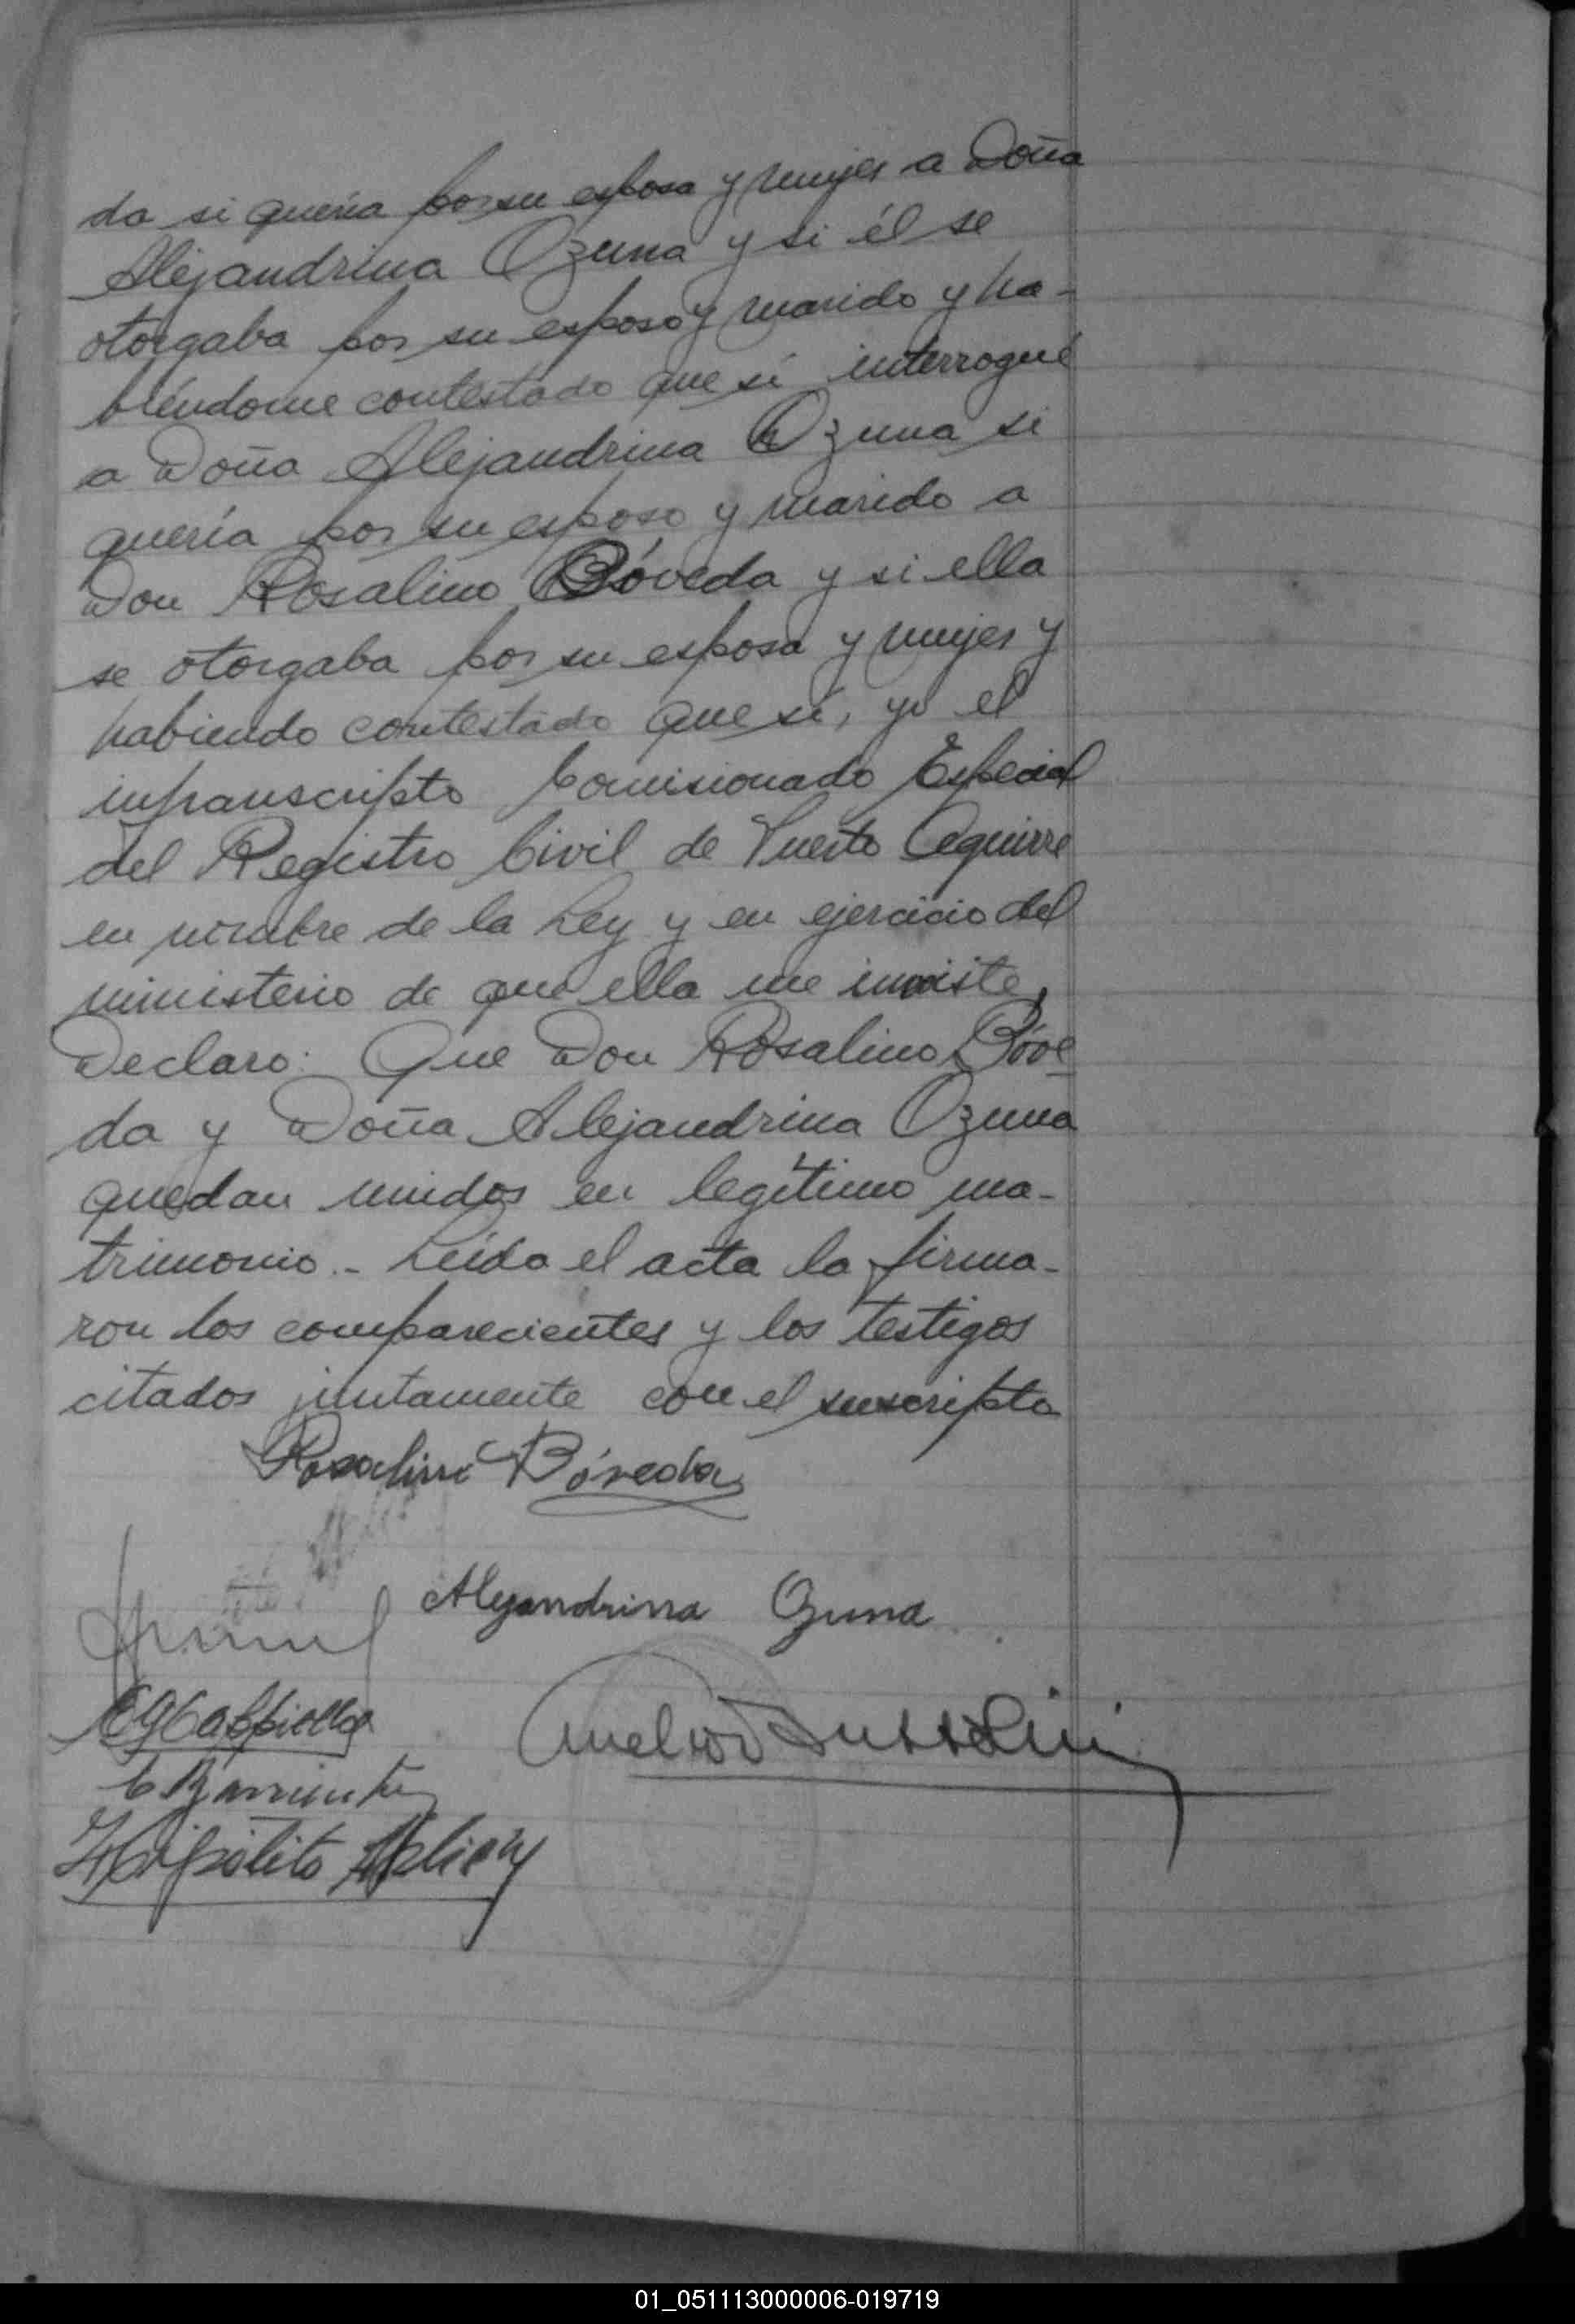 da si quería por su esposa y mujer a Doña
Alejandrina Ozuna y si él se
otorgaba por su esposo y marido y ha-
biéndome contestado que sí interrogué
a Doña Alejandrina Ozuna si
quería por su esposo y marido a
Don Rosalino Bóveda y si ella
se otorgaba por su esposa y mujer y
habiendo contestado que sí, yo el
infranscripto Comisionado Especial
del Registro Civil de Puerto Aguirre
en nombre de la Ley y en ejercicio del
ministerio de que ella me inviste,
Declaro: Que Don Rosalino Bóve
da y Doña Alejandrina Ozuna
quedan unidos en legítimo ma-
trimonio.- Leída el acta la firma-
ron los comparecientes y los testigos
citados juntamente con el suscripto
Rosalino Bóveda
Alejandrina Ozuna
Hipólito
01_051113000006-019719